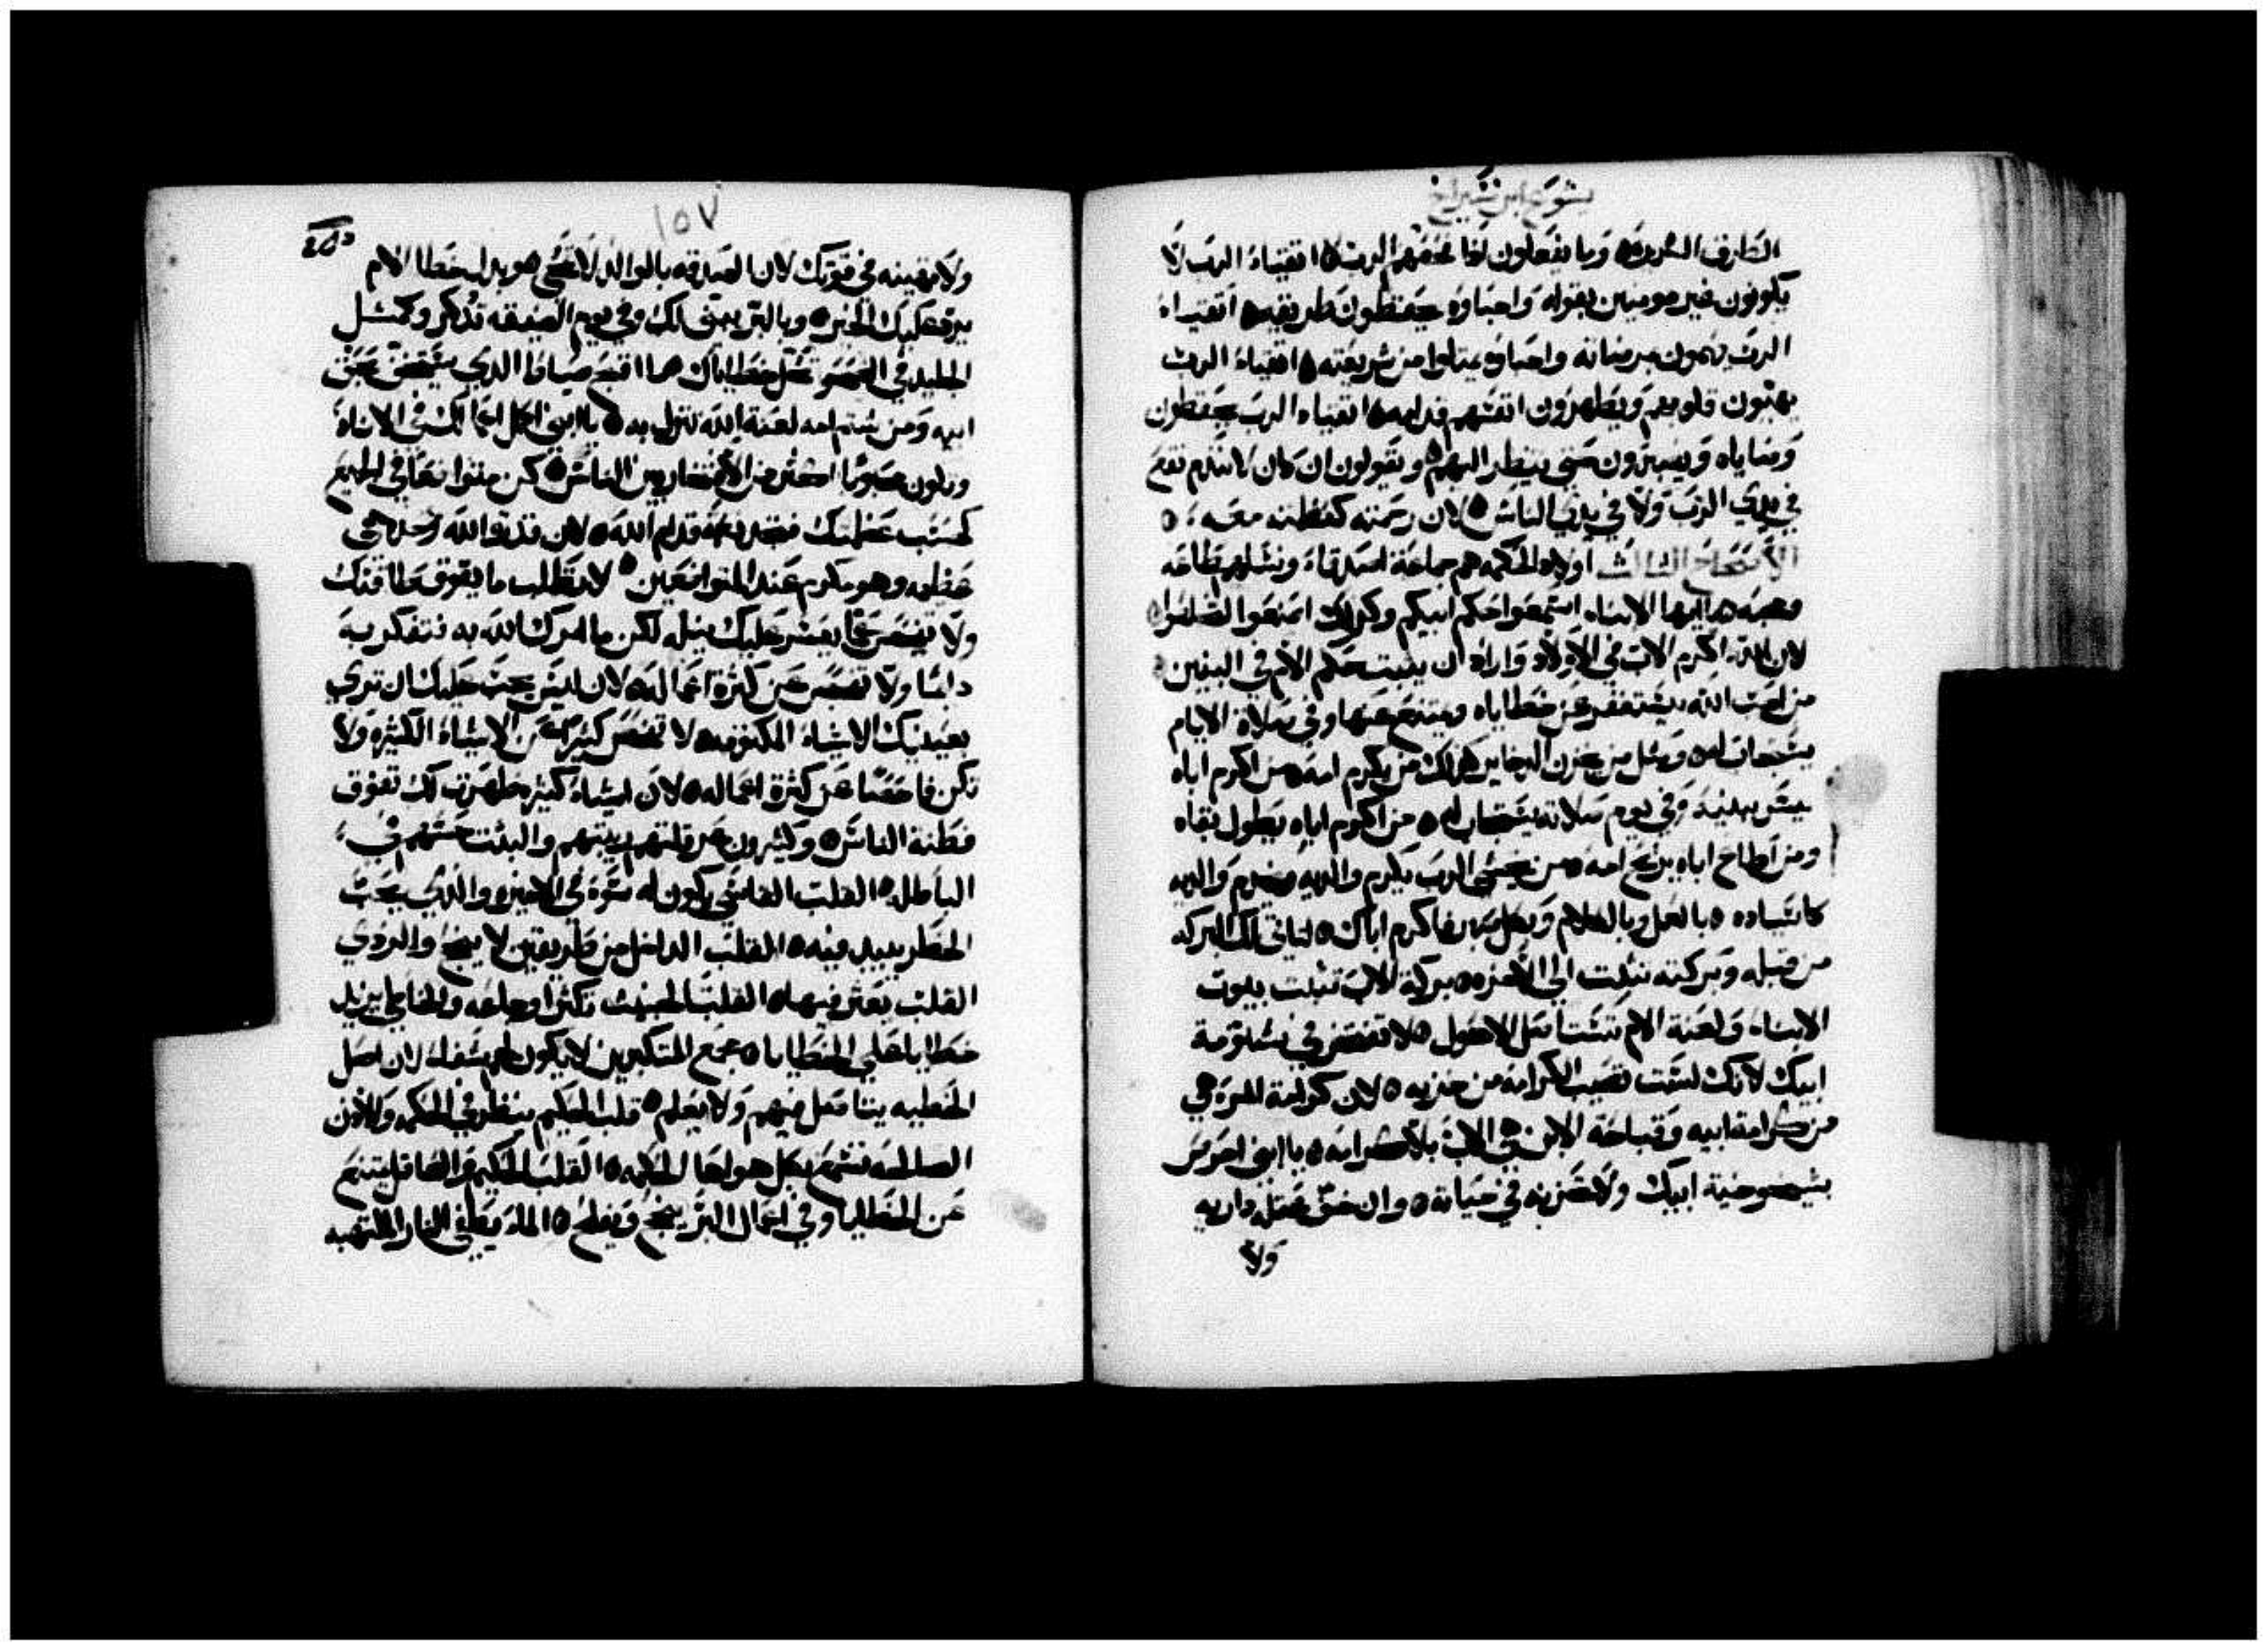 يشوع ابن شيراخ
الطرق الشريره وما يفعلون اذا تخفهم الرب ٥ اتقياء الرب لا
يكونون غير مومنين بقوله واحباوه يحفظون طريقه ٥ اتقياء
الرب يرمون مرضاته واحباوه يمتلوا من شريعته ٥ اتقياء الرب
يهيون قلوبهم ويطهرون انفسهم قدامه ٥ اتقياء الرب يحفظون
وصاياه ويصبرون حتى ينظر اليهم ٥ ويقولون ان كان لا نندم نقع
في يدي الرب ولا في يدي الناس ٥ لان رحمته كعظمته معه ٥
الاصحاح الثالث اولاد الحكمه هم جماعة اصدقاء ونسلهم طاعه
ومحبه ٥ ايها الابناء استمعوا حكم ابيكم وكذلك اصنعوا لتخلصوا
لان الله اكرم الاب في الاولاد واراد ان يثبت حكم الام في البنين
من احب الله يستغفر عن خطاياه ويمتنع عنها وفي صلاة الايام
يستجاب له ٥ ومثل من يخزن الدخاير كذلك من يكرم امه ٥ من اكرم اباه
يسر ببنيه وفي يوم صلاته يستجاب له ٥ من اكرم اباه يطول بقاه
ومن اطاع اباه يريح امه ٥ من يخشى الرب يكرم والديه ويخدم والديه
كاسياده ٥ بالعمل وبالكلام وبكل صبر فاكرم اباك ٥ لتاتي لك البركه
من قبله وبركته تثبت الى الاخره ٥ بركة الاب تثبت بيوت
الابناء ولعنة الام تستاصل الاصول ٥ لا تفتخر في شتومة
ابيك لانك لست تصيب الكرامه من خزيه ٥ لان كرامة المرء هي
من كرامة ابيه وقباحة الابن هي الاب بلا كرامه ٥ يا ابني احرص
بشيخوخية ابيك ولا تحزنه في حياته ٥ وان خف عقله داريه
ولا
١٥٧
ولا تهينه في قوتك لان الصدقه بالوالد لا تنسى هو بدل خطا الام
يرد عليك الخير ٥ وبالبر يبنى لك وفي يوم الضيقه تذكر وكمثل
الجليد في الصحو تنحل خطاياك ٥ ما اقبح صيتا الذي يتخلى عن
ابيه ومن شتم امه لعنة الله تنزل به ٥ يا ابني اكمل اعمالك في الاناه
وتكون محبوبا اكثر من الافتخار بين الناس ٥ كن متواضعا في الجميع
كحسب عظمتك فتجد نعمة قدام الله ٥ لان قدرة الله وحده هي
عظيمه وهو مكرم عند المتواضعين ٥ لا تطلب ما يفوق طاقتك
ولا تفحص عما يعسر عليك نيله لكن ما امرك الله به فتفكر به
دايما ولا تفحص عن كثرة اعماله ٥ لان ليس يجب عليك ان ترى
بعينيك الاشياء المكنونه ٥ لا تفحص كثيرا عن الاشياء الكثيره ولا
تكن فاحصا عن كثرة اعماله ٥ لان اشياء كثيره ظهرت لك تفوق
فطنة الناس ٥ وكثيرون عرقلتهم ريبتهم والبثت حسهم في
الباطل ٥ القلب القاسي يكون له سوء في الاخره والذي يحب
الخطر يبيد فيه ٥ القلب الداخل من طريقين لا ينجح والردي
القلب يعثر فيها ٥ القلب الخبيث تكثر اوجاعه والخاطي يزيد
خطايا على الخطايا ٥ مجمع المتكبرين لا يكون لهم شفاء لان اصل
الخطيه يتاصل فيهم ولا يعلم ٥ قلب الحكيم ينظر في الحكمه والاذن
الصالحه تسمع بكل هواها الحكمه ٥ القلب الحكيم والعاقل يمتنع
عن الخطايا وفي اعمال البر ينجح ويفلح ٥ الماء يطفي النار الملتهبه